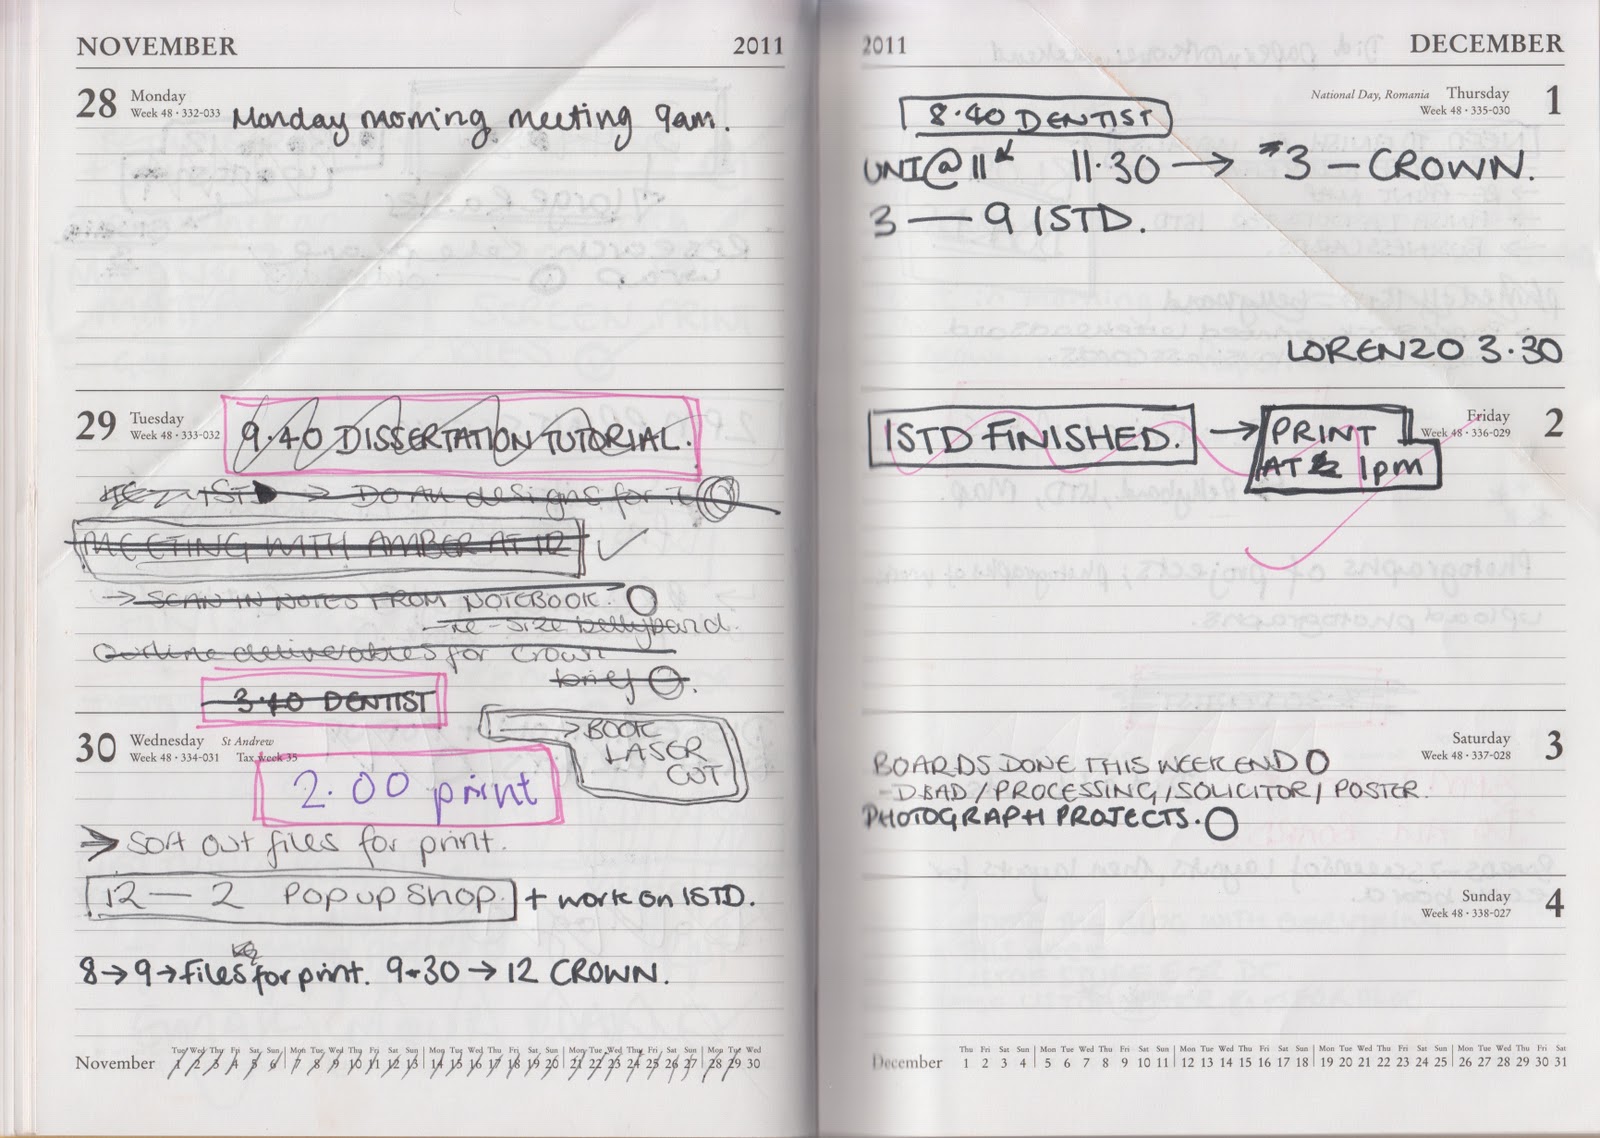 NOVEMBER 2011
28 Monday
Week 48 · 332-033
Monday morning meeting 9am.
29 Tuesday
Week 48 · 333-032
9.40 DISSERTATION TUTORIAL.
ISTD → DO ALL designs for it
MEETING WITH AMBER AT 12
→ SCAN IN NOTES FROM NOTEBOOK.
- re-size bellyband.
Outline deliverables for crown
brief
3.40 DENTIST
30 Wednesday St Andrew
Week 48 · 334-031 Tax week 35
→ BOOK
LASER
CUT
2.00 print
→ Sort out files for print.
12 — 2 Pop up Shop. + work on ISTD.
8 → 9 → files for print. 9.30 → 12 CROWN.
November
Tue Wed Thu Fri Sat Sun Mon Tue Wed Thu Fri Sat Sun Mon Tue Wed Thu Fri Sat Sun Mon Tue Wed Thu Fri Sat Sun Mon Tue Wed
1 2 3 4 5 6 7 8 9 10 11 12 13 14 15 16 17 18 19 20 21 22 23 24 25 26 27 28 29 30
2011 DECEMBER
National Day, Romania Thursday 1
Week 48 · 335-030
8.40 DENTIST
UNI @ 11 11.30 → 3 — CROWN.
3 — 9 ISTD.
LORENZO 3.30
Friday 2
Week 48 · 336-029
ISTD FINISHED. → PRINT
AT 1pm
Saturday 3
Week 48 · 337-028
BOARDS DONE THIS WEEKEND
- D&AD / PROCESSING / SOLICITOR / POSTER.
PHOTOGRAPH PROJECTS.
Sunday 4
Week 48 · 338-027
December
Thu Fri Sat Sun Mon Tue Wed Thu Fri Sat Sun Mon Tue Wed Thu Fri Sat Sun Mon Tue Wed Thu Fri Sat Sun Mon Tue Wed Thu Fri Sat
1 2 3 4 5 6 7 8 9 10 11 12 13 14 15 16 17 18 19 20 21 22 23 24 25 26 27 28 29 30 31